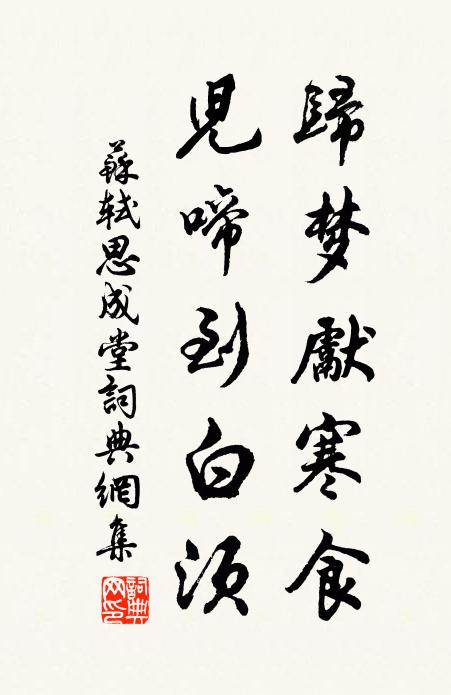 歸梦獻寒食
兒啼到白須
蘇軾思成堂詞典網集
詞典
网印